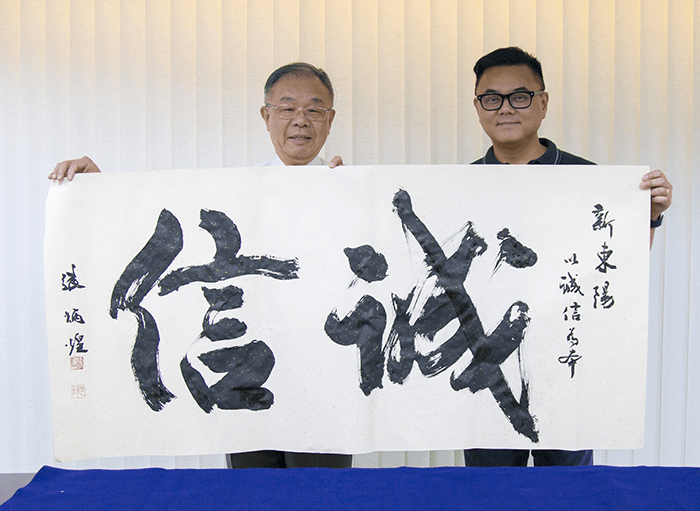 新東陽
以誠信為本
誠信
張炳煌